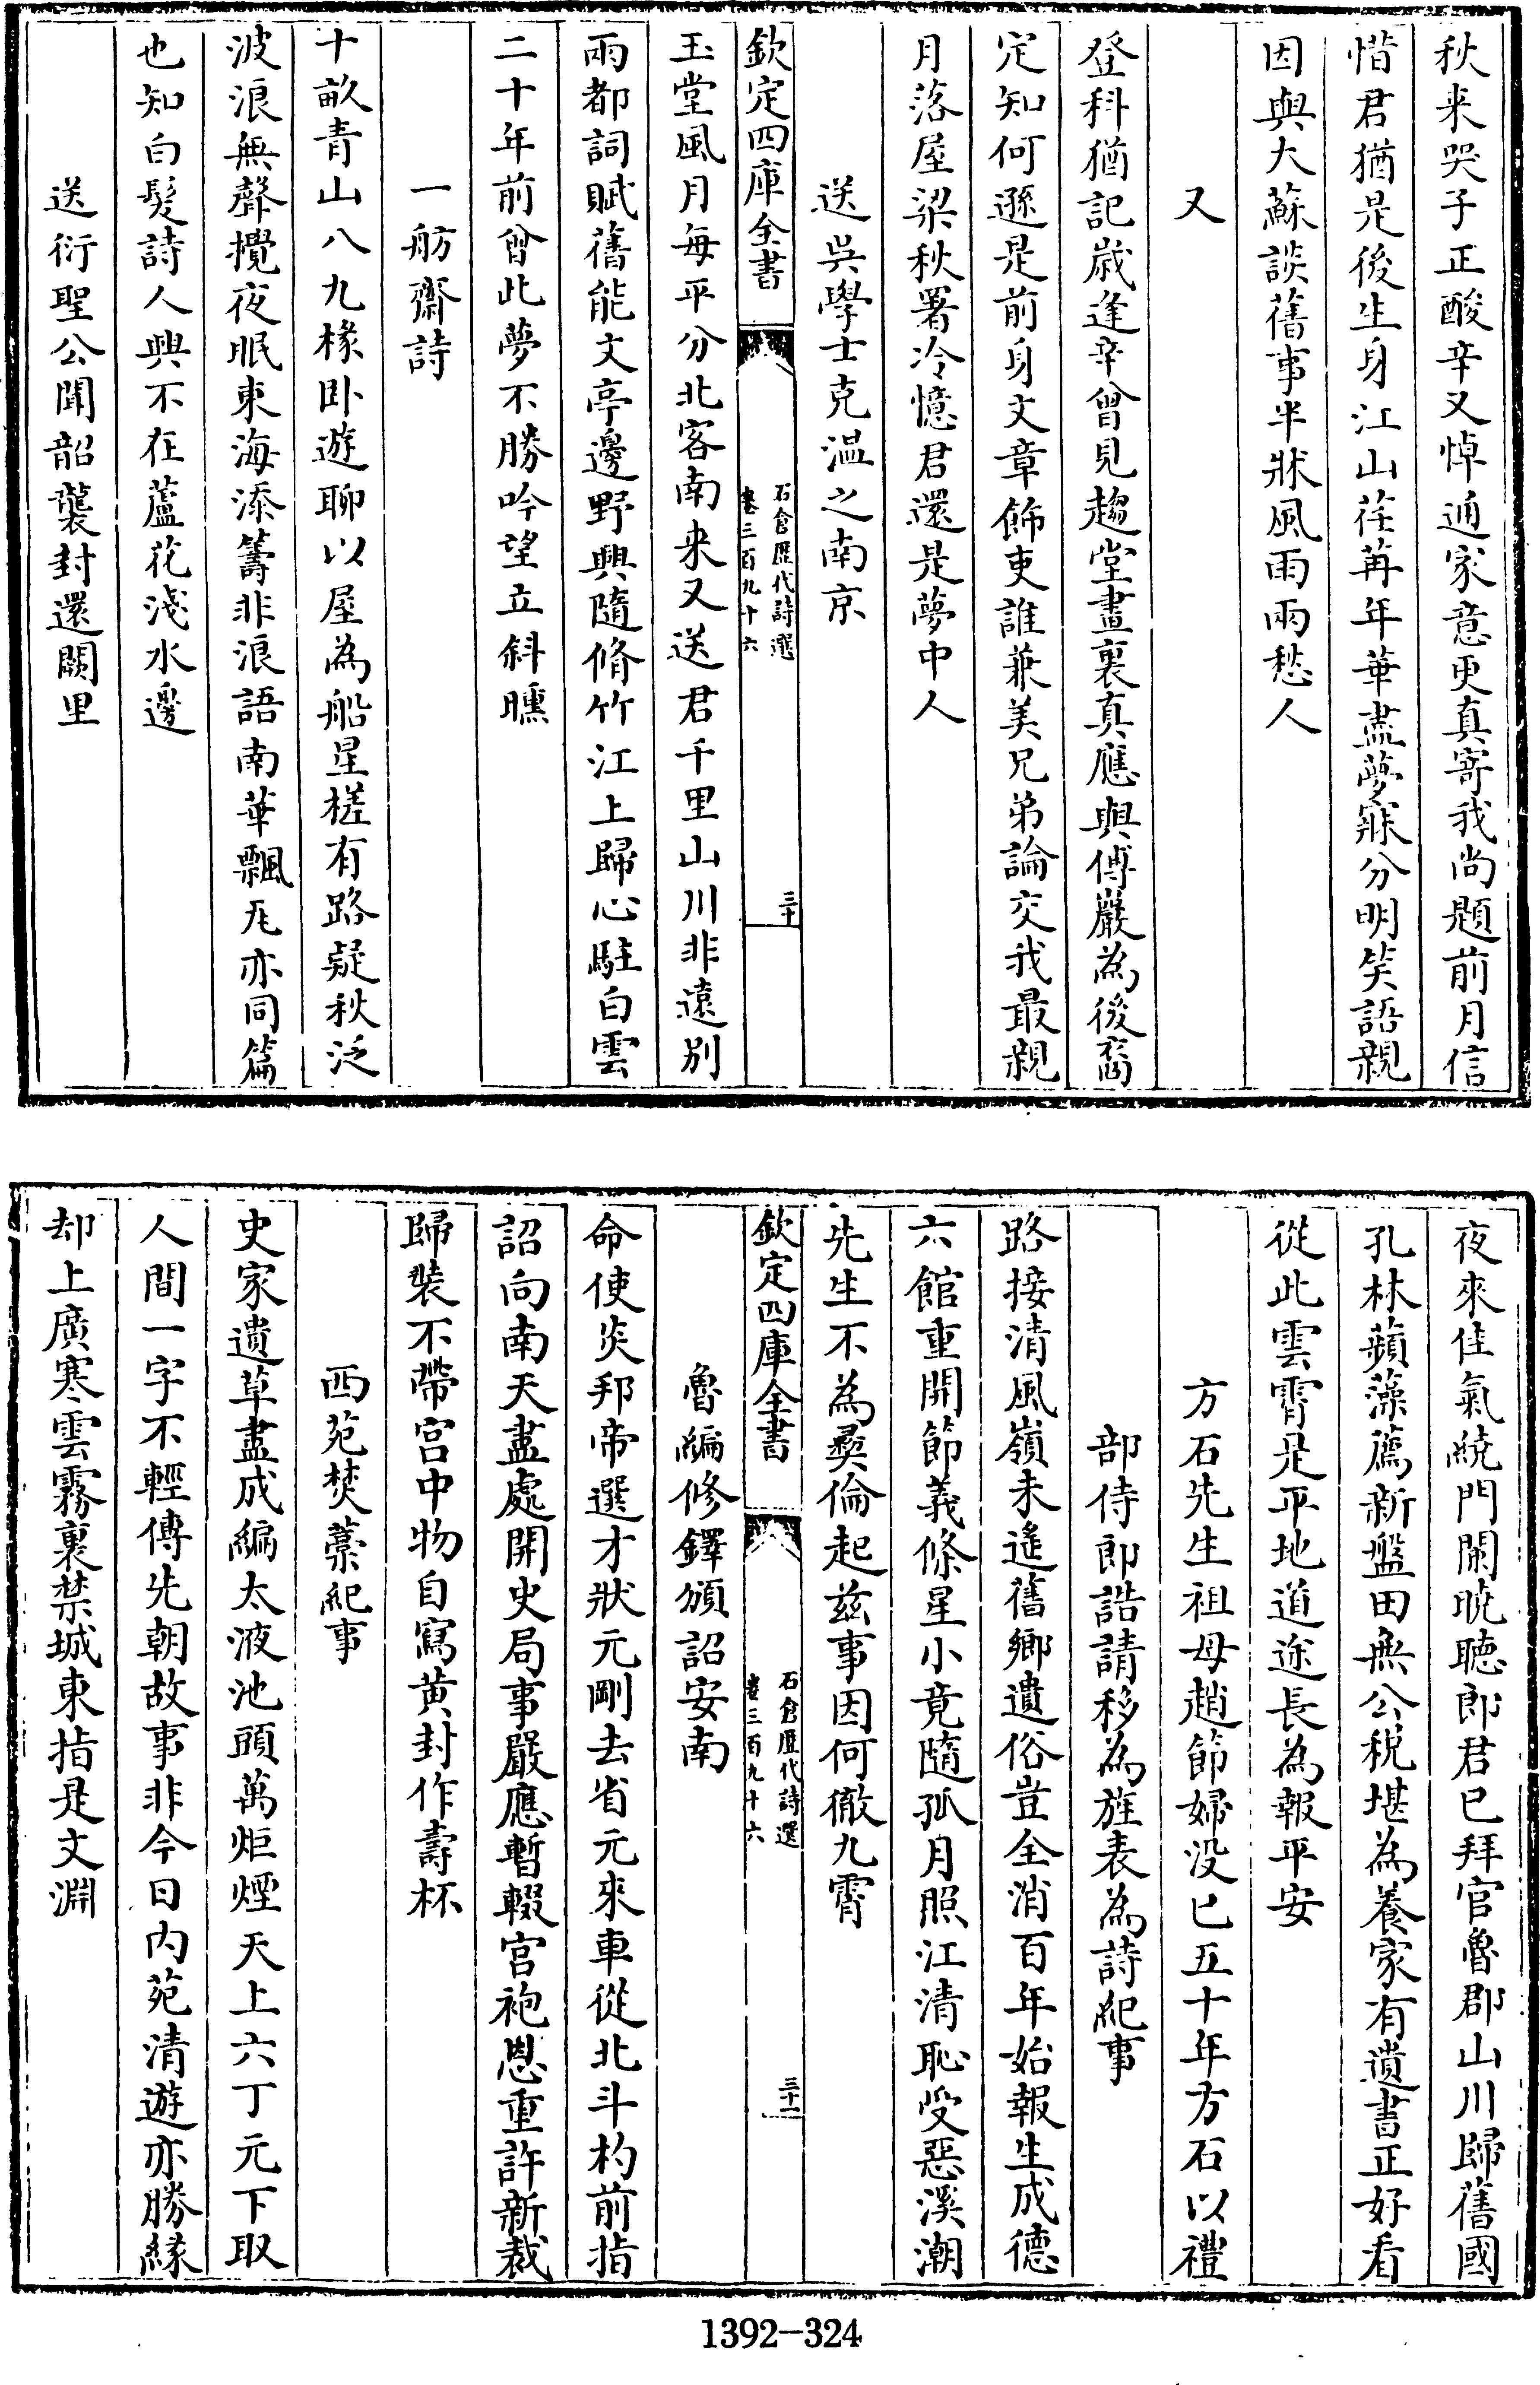 秋来哭子正酸辛又悼通家意更真寄我尚題前月信
惜君猶是後生身江山荏苒年華盡夢寐分明笑語親
因與大蘇談舊事半牀風雨兩愁人
又
登科猶記歲逢辛曾見趨堂畫裏真應與傅巖為後裔
定知何遜是前身文章飾吏誰兼美兄弟論交我最親
月落屋梁秋署冷憶君還是夢中人
送吳學士克温之南京
欽定四庫全書
石倉歷代詩選
卷三百九十六
三十
玉堂風月每平分北客南来又送君千里山川非遠别
兩都詞賦舊能文亭邊野興隨脩竹江上歸心駐白雲
二十年前曾此夢不勝吟望立斜曛
一舫齋詩
十畝青山八九椽卧遊聊以屋為船星槎有路疑秋泛
波浪無聲攪夜眠東海添籌非浪語南華飄瓦亦同篇
也知白髮詩人興不在蘆花淺水邊
送衍聖公聞韶襲封還闕里
夜來佳氣繞門闌曉聴郎君已拜官魯郡山川歸舊國
孔林蘋藻薦新盤田無公税堪為養家有遺書正好看
從此雲霄是平地道途長為報平安
方石先生祖母趙節婦没已五十年方石以禮
部侍郎誥請移為旌表為詩紀事
路接清風嶺未遙舊鄉遺俗豈全消百年始報生成德
六館重開節義條星小竟隨孤月照江清恥受惡溪潮
先生不為彞倫起兹事因何徹九霄
欽定四庫全書
石倉歷代詩選
卷三百九十六
三十一
魯編修鐸頒詔安南
命使炎邦帝選才狀元剛去省元來車從北斗杓前指
詔向南天盡處開史局事嚴應暫輟宫袍恩重許新裁
歸裝不帶宫中物自寫黄封作壽杯
西苑焚藁紀事
史家遺草盡成編太液池頭萬炬煙天上六丁元下取
人間一字不輕傳先朝故事非今日内苑清遊亦勝緣
却上廣寒雲霧裏禁城東指是文淵
1392-324